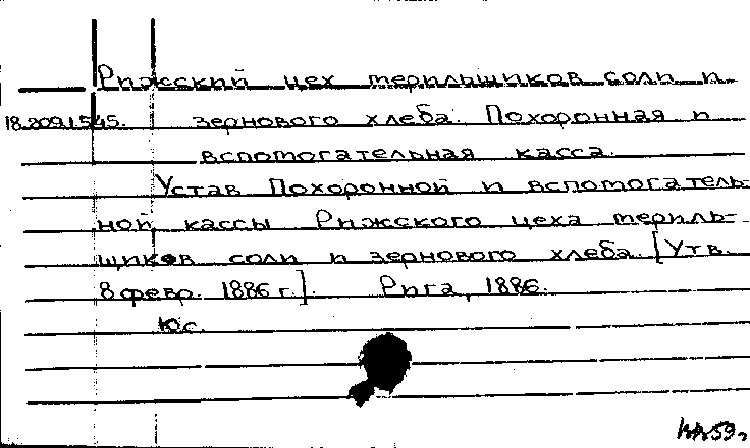 Рижский цех терильщиков соли и
18.209.1.545. зернового хлеба. Похоронная и
вспомогательная касса.
Устав Похоронной и вспомогатель-
ной кассы Рижского цеха териль-
щиков соли и зернового хлеба. [Утв.
8 февр. 1886 г.]. Рига, 1886.
10с.